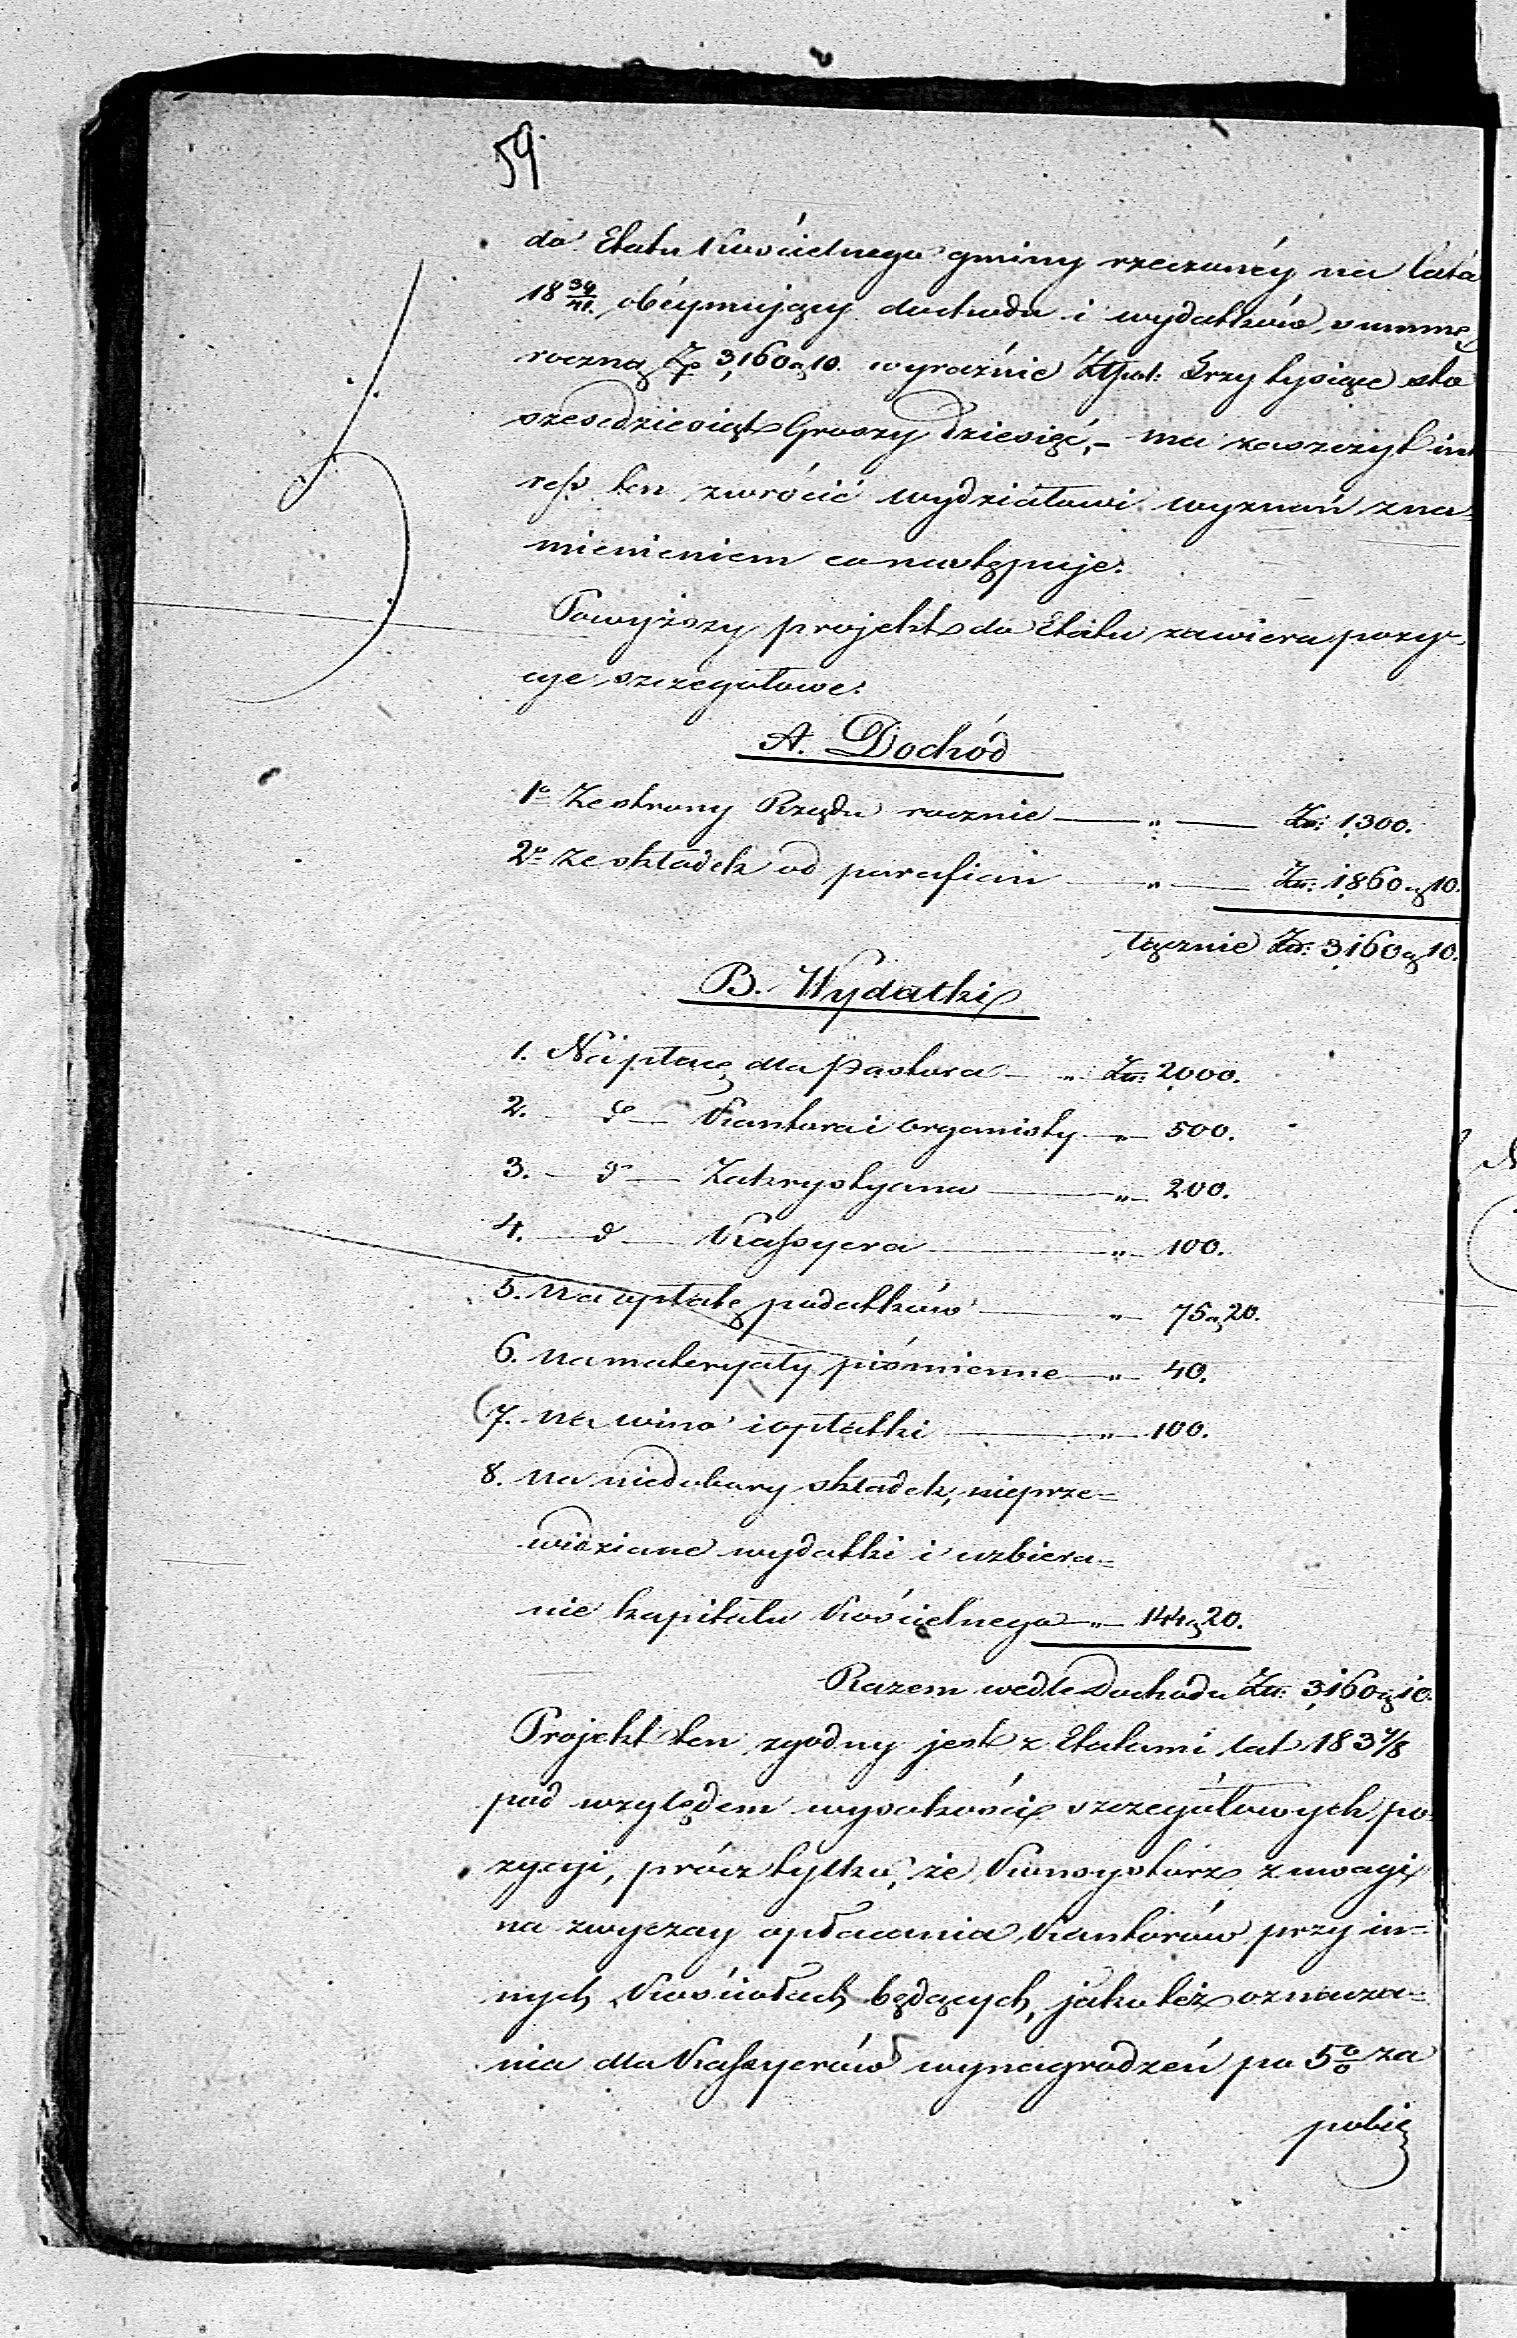 59
do Etatu Kościelnego gminy rzeczonéy na lata
18 39/41. obéymujący dochodu i wydatków summę
roczną Zp 3,160 gr 10. wyraźnie Złpol: Trzy tysiące sto
sześćdziesiąt Groszy dziesięć,- ma zaszczyt in
ress ten zwrócić wydziałowi wyznań z na-
mienieniem co następuje:
Powyższy projekt do Etatu zawiera pozy-
cye szczegółowe:
A. Dochód
1o Ze strony Rządu rocznie — " — Złr: 1,300.
2o Ze składek od parafian — " — Złr: 1,860 gr 10.
łącznie Złr: 3,160 gr 10.
B. Wydatki
1. Na płacę dla Pastora — " Złr: 2,000.
2. — do — Kantora i organisty — " — 500.
3. — do — Zakrystyana — " — 200.
4. — do — Kassyera — " — 100.
5. Na opłatę podatków — " — 75 gr 20.
6. na materyały piśmienne — " — 40.
7. na wino i opłatki — " — 100.
8. na niedobory składek, nieprze=
widziane wydatki i uzbiera=
nie kapitału Kościelnego — " — 144 gr 20.
Razem wedle Dochodu Złr: 3,160 gr 10.
Projekt ten zgodny jest z Etatami lat 183 7/8
pod względem wysokości szczegółowych po-
zycyi, prócz tylko, że Konsystorz z uwagi
na zwyczay opłacania Kantorów przy in=
nych Kościołach będących, jako też oznacza=
nia dla Kassyerów wynagrodzeń po 5 0/0 za
pobie